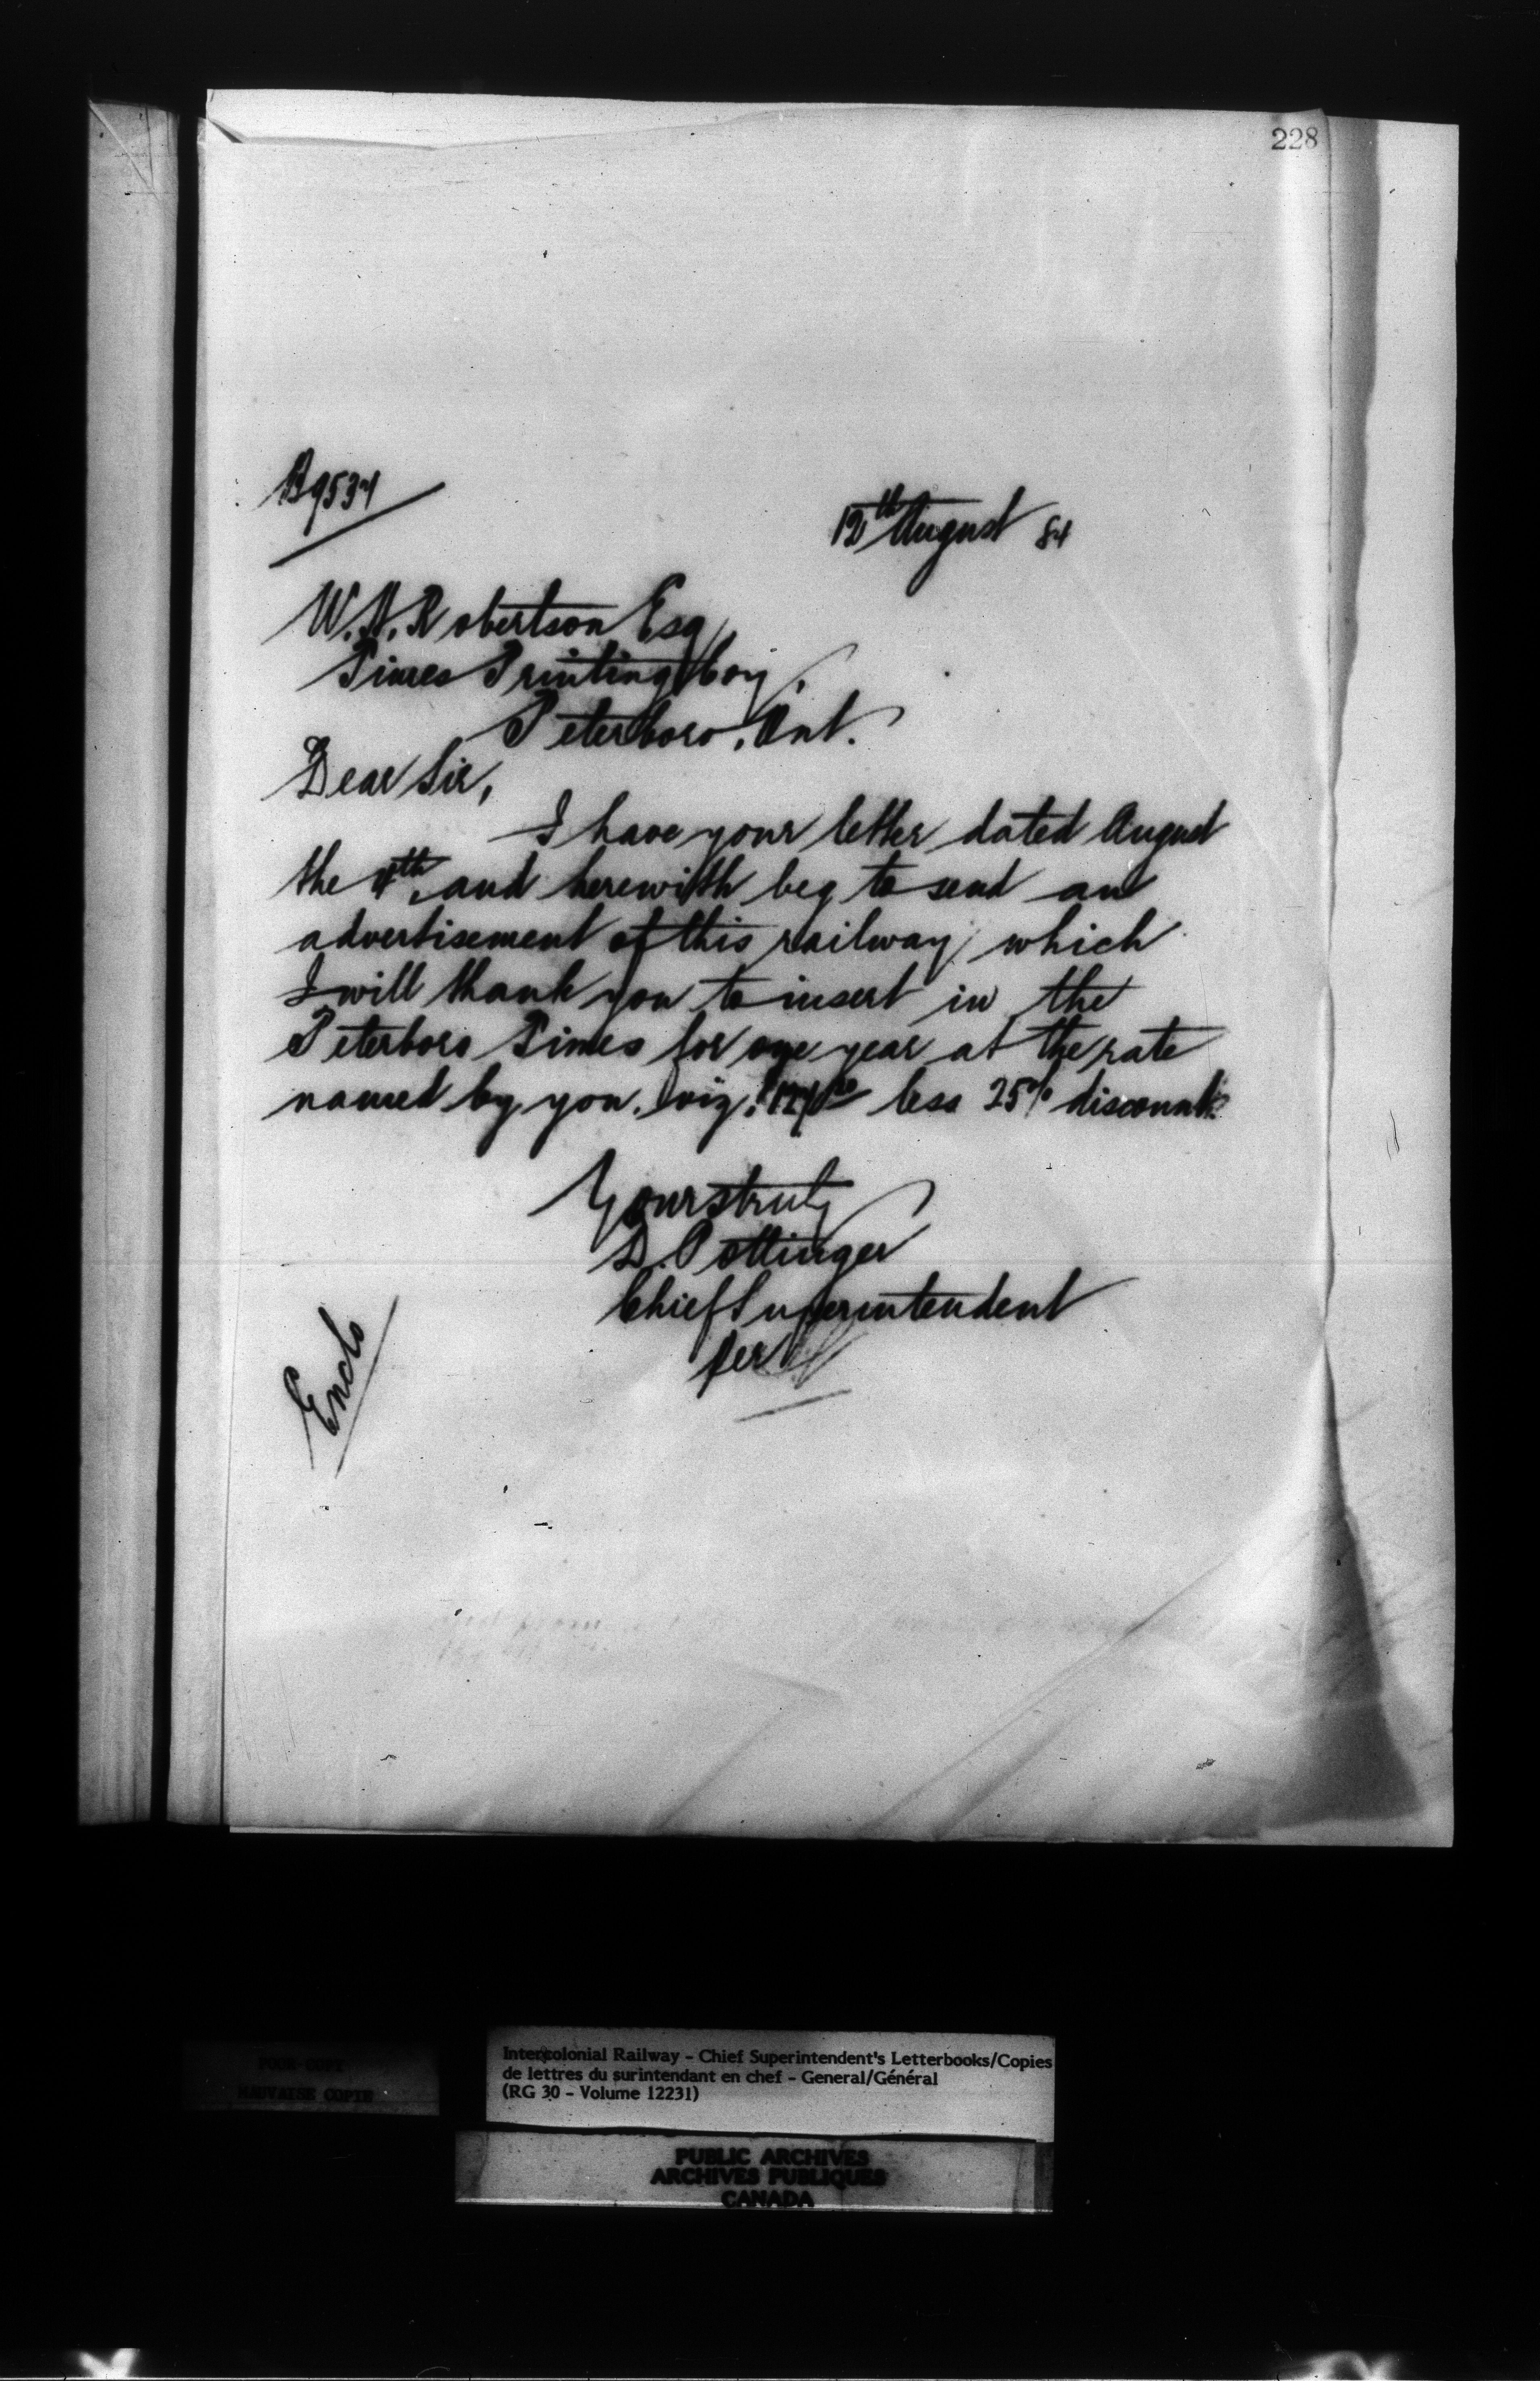 228
B9534
12th August 84
W.A. Robertson Esq
Times Printing Coy,
Peterboro, Ont.
Dear Sir,
I have your letter dated August
the 4th, and herewith beg to send an
advertisement of this railway, which
I will thank you to insert in the
Peterboro Times for one year at the rate
named by you. viz: less 25% discount.
Yours truly
D. Pottinger
Chief Superintendent
per
Encls
POOR COPY
MAUVAISE COPIE
Intercolonial Railway - Chief Superintendent's Letterbooks/Copies
de lettres du surintendant en chef - General/Général
(RG 30 - Volume 12231)
PUBLIC ARCHIVES
ARCHIVES PUBLIQUES
CANADA